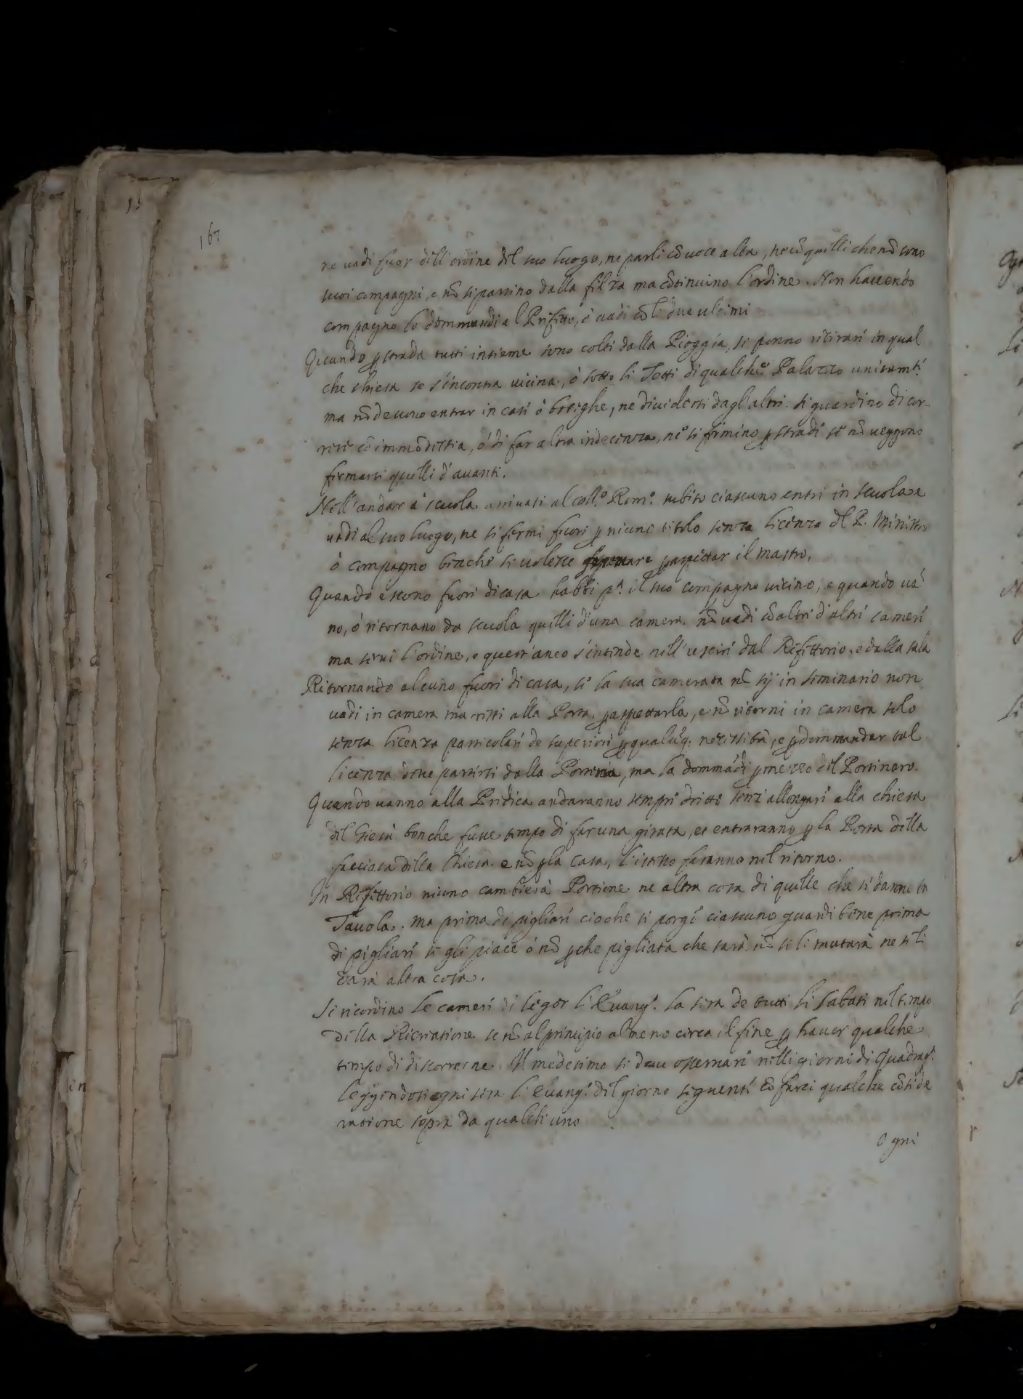 167
ne vadi fuor dell'ordine del suo luogo, ne parli cõ voce alta, ne cõ quelli che nõ sono
suoi compagni, e nõ si partino dalla filza ma cõtinuino l'ordine. Non havendo
compagno lo dommandi al Prefetto, ó vadi cõ li due ultimi
Quando p strada tutti insieme sono colti dalla Pioggia, si ponno ritirari in qual
che chiesa se s'incontra vicina, ó sotto li Tetti di qualche Palazzo unitamti
ma nõ devono entrar in casi ó botteghe, ne dividersi dagl'altri si guardino di cor
rere cõ immodestia, ó di far altra indecenza, ne si fermino p stradi se nõ veggono
fermarsi quelli d'avanti.
Nell'andar a scuola arrivati al Coll.º Rom.º subito ciascuno entri in scuola e
vadi al suo luogo, ne si fermi fuori p niuno titolo senza licenza del P. Ministro
ó compagno benche si volesse p aspettar il mastro.
Quando escono fuori di casa habbi p.ª il suo compagno vicino, e quando va
no, ó ritornano da scuola quelli d'una camera nõ vadi cõ altri d'altri cameri
ma servi l'ordine, e quest'anco s'intende nell'usciri dal Refettorio, e dalla sala
Ritornando alcuno fuori di casa, se la sua camerata nõ sij in seminario non
vadi in camera ma resti alla Porta p aspettarla, e nõ ritorni in camera solo
senza licenza particolari de superiori p qualuq. necessità, e p dommandar tal
licenza deve partirsi dalla Porteria, ma la dommãdi p mezzo del Portinaro.
Quando vanno alla Predica andaranno sempri dritti senz'allongari alla chiesa
del Giesù benche fusse tempo di far una girata, et entraranno p la Porta della
facciata della Chiesa e nõ p la casa, l'istesso faranno nel ritorno.
In Refettorio niuno cambierà Portione ne altra cosa di quelle che si danno in
Tavola. ma prima de pigliari cioche si porge ciascuno guardi bene prima
di pigliari se gli piace ó nõ p che pigliata che sarà nõ se li mutarà ne se li
darà altra cosa.
Si ricordino le cameri di legger li Evang.i la sera de tutti li sabati nel tempo
della Ricreatione se nõ al principio almeno circa il fine p haver qualche
tempo di discorrerne. Il medesimo si deve osservari nelli giorni di Quadrag.ª
leggendosi ogni sera li Evang.i del giorno seguenti cõ farci qualche cõside
ratione sopra da qualch'uno
Ogni